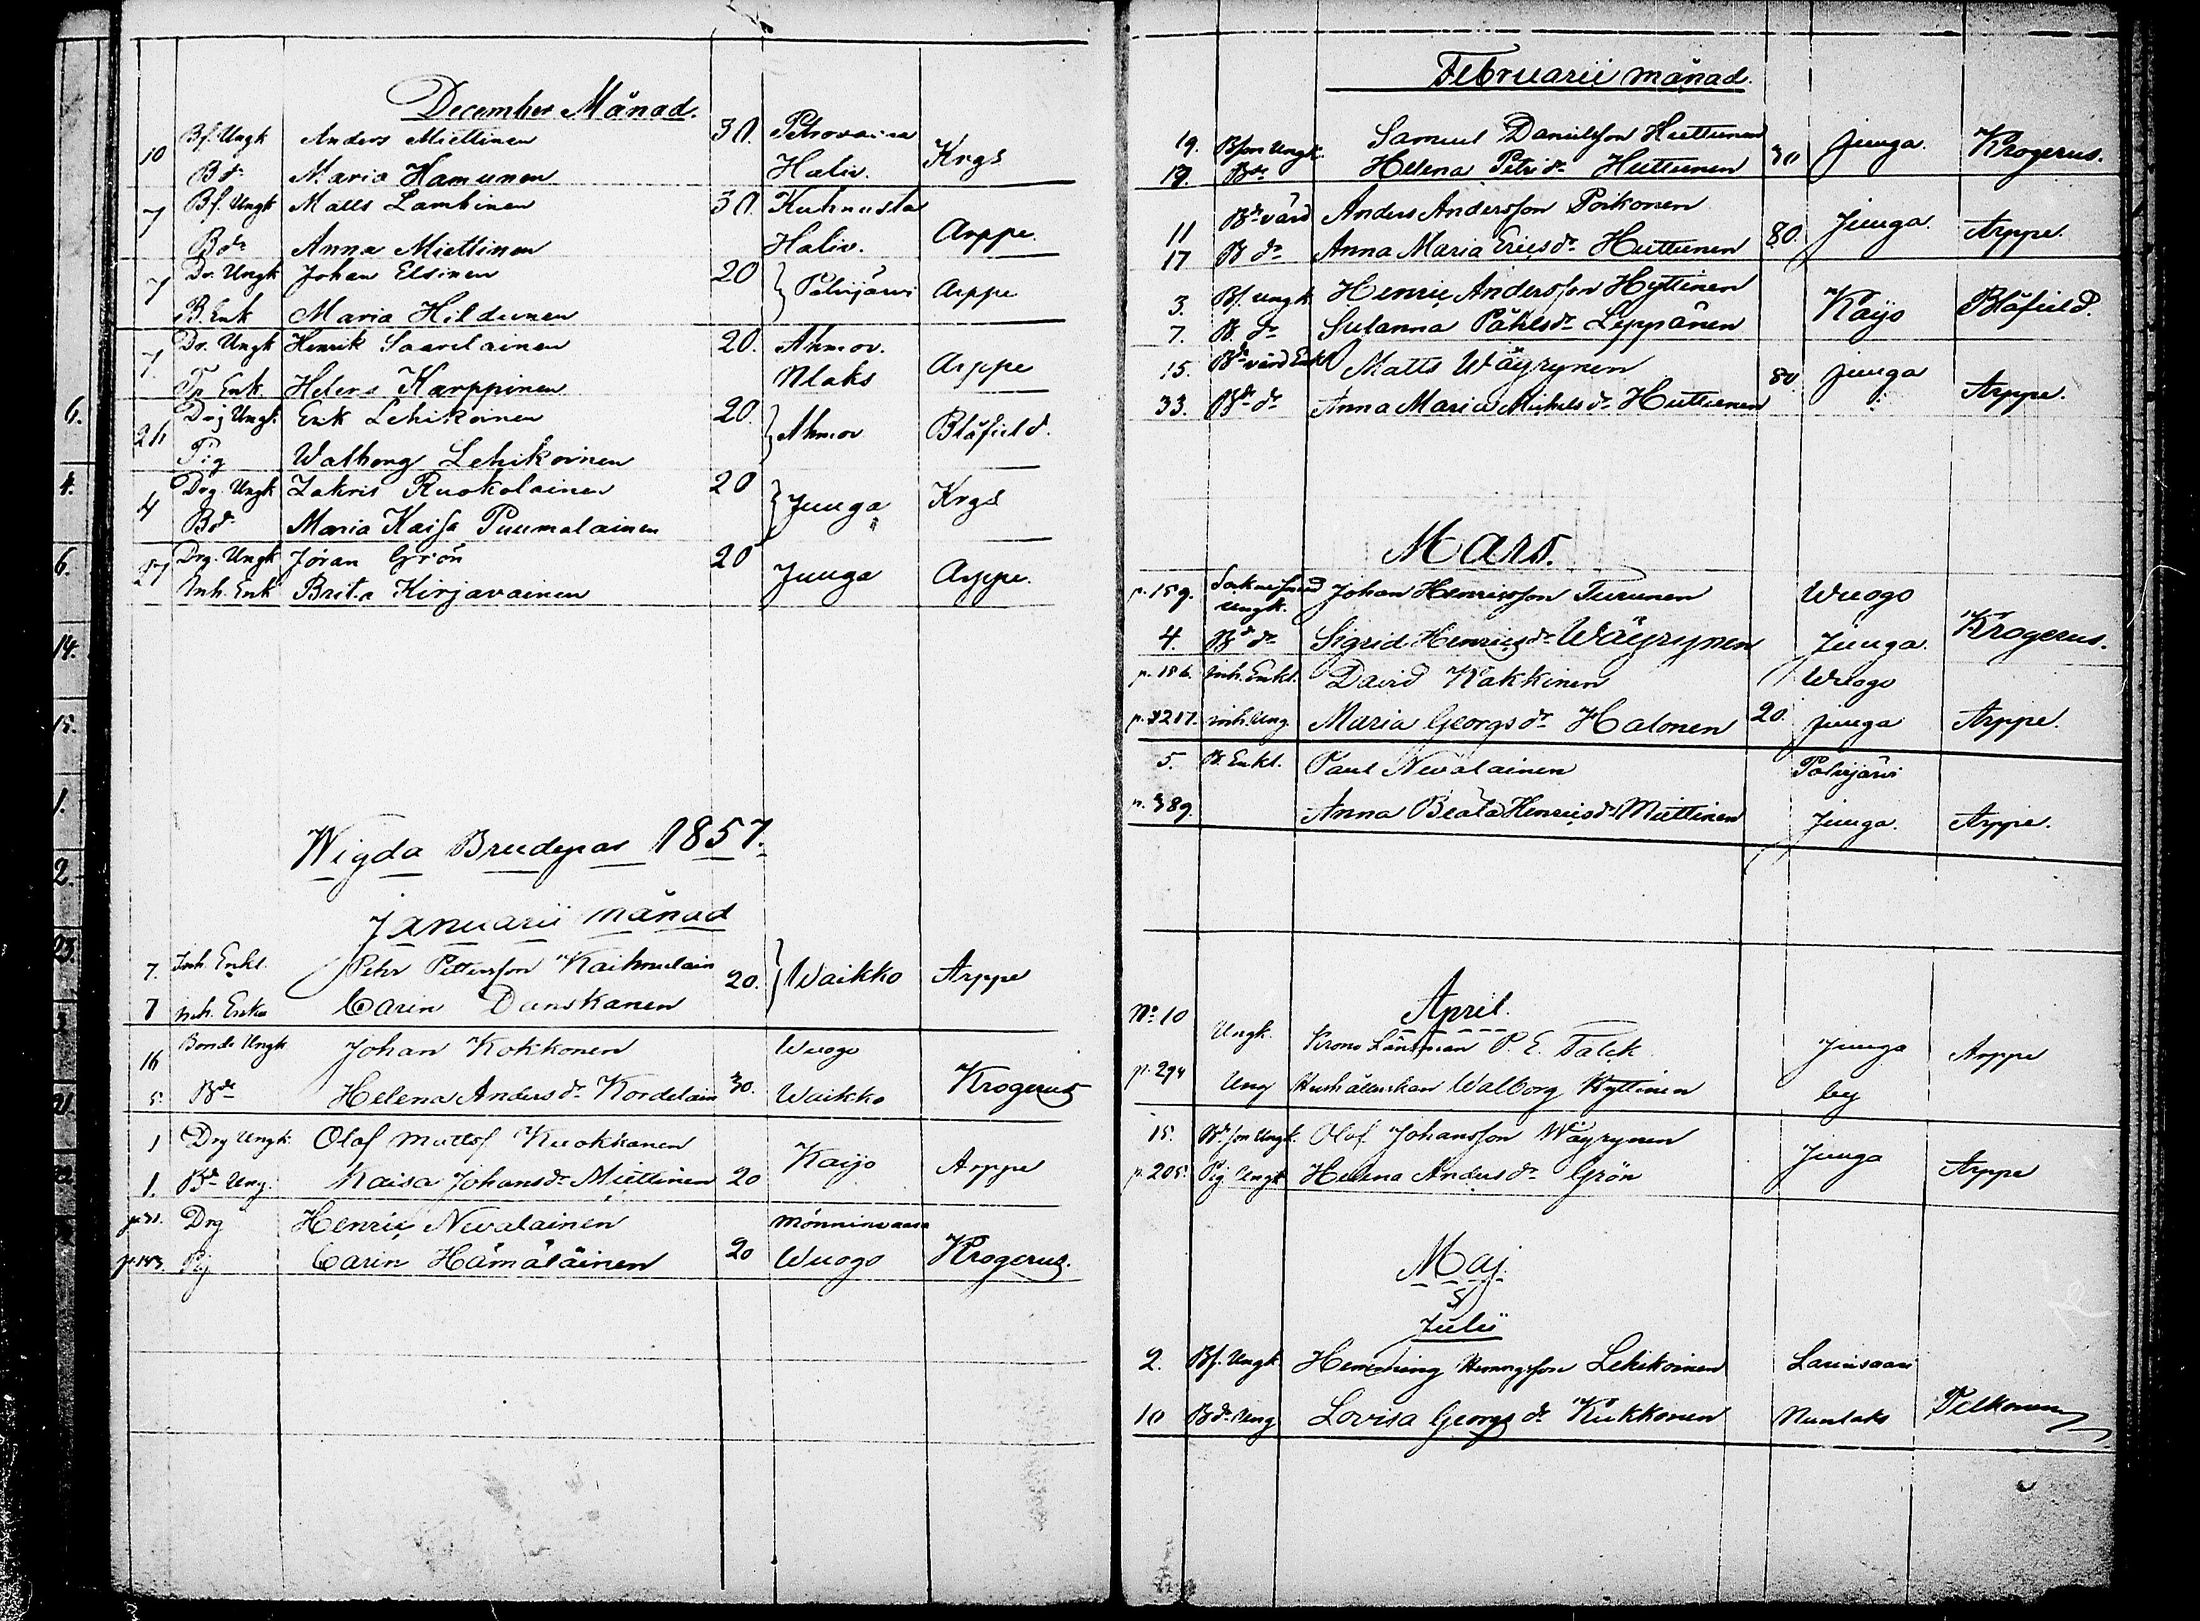 December Månad.
10 Bf. Ungk Anders Miettinen 30. Petrovaara
Bdr Maria Hamunen Haliv. Krgs
7 Bf. Ungk Matts Lambinen 30. Kuhnusta
Bdr Anna Miettinen Haliv. Arppe.
7 Dr. Ungk Johan Elsinen 20 Polvijärvi Arppe
B. Enk Maria Hildunen
7 Dr. Ungk Henrik Saarelainen 20. Ahmov.
Enk Helena Karppinen Nlaks Arppe
26 Drg Ungk. Erik Lehikoinen 20. Ahmov Blåfield.
Pig Walborg Lehikoinen
4 Drg. Ungk Zakris Ruokolainen 20 Juuga Krgs
Bdr Maria Kaisa Puumalainen
27 Drg. Ungk Jöran Grön 20 Juuga Arppe.
Inh. Enk Brita Kirjavainen
Wigda Brudepar 1857.
Januarii månad
7. Inh. Enkl. Petr Pettersson Kaihulain 20. Waikko Arppe
7 inh. Enka Carin Danskanen
16 Bonde Ungk Johan Kokkonen Wuogo
5. Bdr Helena Andersdr Kordelain 30. Waikko Krogerus
1 Drg Ungk. Olof Mattsf Kuokkanen Kaijo Arppe
1. Bdr Ung. Kaisa Johansdr Miettinen 20
p. 31. Drg Henric Nevalainen Mönninvaara
p. 143. Pig Carin Hämäläinen 20 Wuogo Krogerus.
Februarii månad.
19. Bson Ungk. Samuel Danielsson Huttunen
19. Bdr Helena Petri dr Huttunen 30 Juuga. Krogerus.
11 Bdevärd Anders Andersson Poikonen
17 B dr Anna Maria Ericsdr Huttunen 80. Juuga. Arppe.
3. Bf. ungk Henric Andersson Hyttinen
7. B. dr Susanna Påhlsdr Leppänen Kaijo Blåfield.
15. Bdevärd Enkl Matts Wäyrynen
33. Bdr dr Anna Maria Michelsdr Huttunen 80 Juuga Arppe.
Mars.
p. 159. Sockne
Ungk. Johan Henricsson Turunen Wuogo
4. Bd dr Sigrid Henricsdr Wäyrynen Juuga. Krogerus.
p. 186. inh. Enkl. David Kakkinen Wuogo
p. 217. inh. Ung. Maria Georgsdr Halonen 20. Juuga Arppe.
5. B. Enkl. Paul Nevalainen Polvijärvi
p. 389. Anna Beata Henricsdr Miettinen Juuga. Arppe.
April.
No 10 Ungk. Krono Länsman P. E. Falck. Juuga Arppe
p. 294 Ung Hushållerskan Walborg Hyttinen by
15. Bd. son Ungk. Olof Johansson Wäyrynen Juuga Arppe
p. 205. Pig Ungk Helena Andersdr Grön
Maj.
Julii
2. Bf. Ungk. Hemming Hemmingsson Lehikoinen Larinsaari
10 Bdr. Ung Lovisa Georgs dr Kukkonen Nunlaks Telkonen